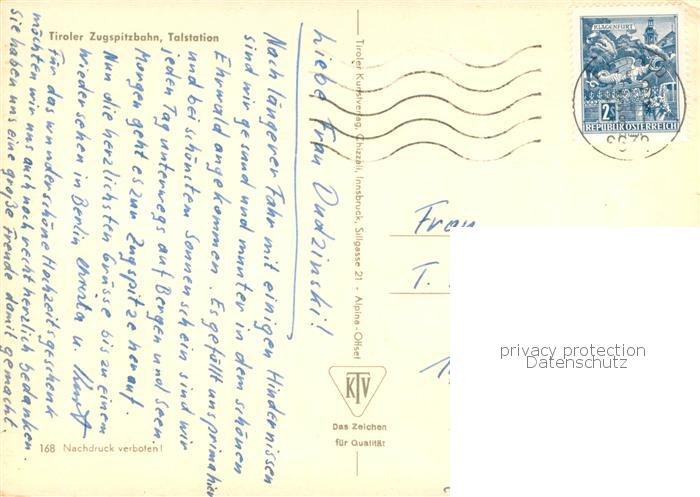 Tiroler Zugspitzbahn, Talstation
Liebe Frau Dudzinski!
Nach längerer Fahr mit einigen Hindernissen
sind wir gesund und munter in dem schönen
Ehrwald angekommen. Es gefällt uns prima hier
und bei schönsten Sonnenschein sind wir
jeden Tag unterwegs auf Bergen und Seen.
Morgen geht es zur Zugspitze herauf.
Nun die herzlichsten Grüsse bis zu einem
Wiedersehen in Berlin Christa u. Kurt
Für das wunderschöne Hochzeitsgeschenk
möchten wir uns auch noch recht herzlich bedanken.
Sie haben uns eine große Freude damit gemacht.
168 Nachdruck verboten!
Tiroler Kunstverlag, Chizzali, Innsbruck, Sillgasse 21 - Alpina-Offset
KTV
Das Zeichen
für Qualität
KLAGENFURT
2
REPUBLIK ÖSTERREICH
Frau
T.
privacy protection
Datenschutz